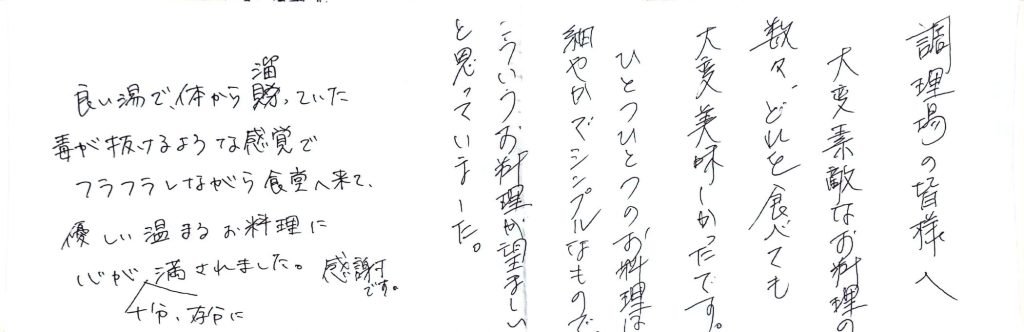 調理場の皆様へ
大変素敵なお料理の
数々、どれを食べても
大変美味しかったです。
ひとつひとつのお料理は
細やかでシンプルなもので、
こういうお料理が望ましい
と思っていました。
良い湯で、体から溜っていた
毒が抜けるような感覚で
フラフラしながら食堂へ来て、
優しい温まるお料理に
心が満されました。感謝です。
十分、存分に